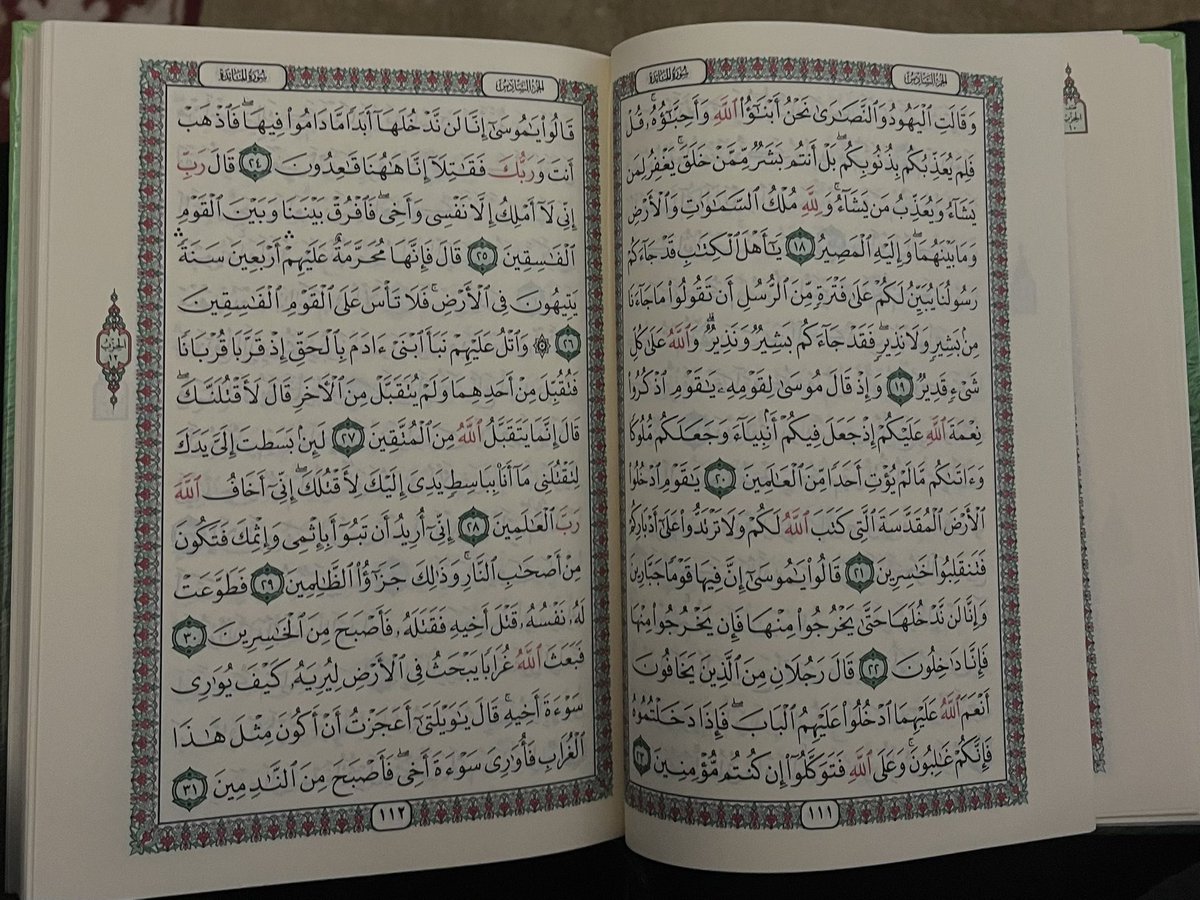 الجزء السادس
سورة المائدة
وَقَالَتِ ٱلْيَهُودُ وَٱلنَّصَـٰرَىٰ نَحْنُ أَبْنَـٰٓؤُا۟ ٱللَّهِ وَأَحِبَّـٰٓؤُهُۥ ۚ قُلْ
فَلِمَ يُعَذِّبُكُم بِذُنُوبِكُم ۖ بَلْ أَنتُم بَشَرٌ مِّمَّنْ خَلَقَ ۚ يَغْفِرُ لِمَن
يَشَآءُ وَيُعَذِّبُ مَن يَشَآءُ ۚ وَلِلَّهِ مُلْكُ ٱلسَّمَـٰوَٰتِ وَٱلْأَرْضِ
وَمَا بَيْنَهُمَا ۖ وَإِلَيْهِ ٱلْمَصِيرُ ١٨ يَـٰٓأَهْلَ ٱلْكِتَـٰبِ قَدْ جَآءَكُمْ
رَسُولُنَا يُبَيِّنُ لَكُمْ عَلَىٰ فَتْرَةٍ مِّنَ ٱلرُّسُلِ أَن تَقُولُوا۟ مَا جَآءَنَا
مِنۢ بَشِيرٍ وَلَا نَذِيرٍ ۖ فَقَدْ جَآءَكُم بَشِيرٌ وَنَذِيرٌ ۗ وَٱللَّهُ عَلَىٰ كُلِّ
شَىْءٍ قَدِيرٌ ١٩ وَإِذْ قَالَ مُوسَىٰ لِقَوْمِهِۦ يَـٰقَوْمِ ٱذْكُرُوا۟
نِعْمَةَ ٱللَّهِ عَلَيْكُمْ إِذْ جَعَلَ فِيكُمْ أَنۢبِيَآءَ وَجَعَلَكُم مُّلُوكًا
وَءَاتَىٰكُم مَّا لَمْ يُؤْتِ أَحَدًا مِّنَ ٱلْعَـٰلَمِينَ ٢٠ يَـٰقَوْمِ ٱدْخُلُوا۟
ٱلْأَرْضَ ٱلْمُقَدَّسَةَ ٱلَّتِى كَتَبَ ٱللَّهُ لَكُمْ وَلَا تَرْتَدُّوا۟ عَلَىٰٓ أَدْبَارِكُمْ
فَتَنقَلِبُوا۟ خَـٰسِرِينَ ٢١ قَالُوا۟ يَـٰمُوسَىٰٓ إِنَّ فِيهَا قَوْمًا جَبَّارِينَ
وَإِنَّا لَن نَّدْخُلَهَا حَتَّىٰ يَخْرُجُوا۟ مِنْهَا فَإِن يَخْرُجُوا۟ مِنْهَا
فَإِنَّا دَٰخِلُونَ ٢٢ قَالَ رَجُلَانِ مِنَ ٱلَّذِينَ يَخَافُونَ
أَنْعَمَ ٱللَّهُ عَلَيْهِمَا ٱدْخُلُوا۟ عَلَيْهِمُ ٱلْبَابَ ۖ فَإِذَا دَخَلْتُمُوهُ
فَإِنَّكُمْ غَـٰلِبُونَ ۚ وَعَلَى ٱللَّهِ فَتَوَكَّلُوٓا۟ إِن كُنتُم مُّؤْمِنِينَ ٢٣
١١١
الجزء السادس
سورة المائدة
قَالُوا۟ يَـٰمُوسَىٰٓ إِنَّا لَن نَّدْخُلَهَآ أَبَدًا مَّا دَامُوا۟ فِيهَا ۖ فَٱذْهَبْ
أَنتَ وَرَبُّكَ فَقَـٰتِلَآ إِنَّا هَـٰهُنَا قَـٰعِدُونَ ٢٤ قَالَ رَبِّ
إِنِّى لَآ أَمْلِكُ إِلَّا نَفْسِى وَأَخِى ۖ فَٱفْرُقْ بَيْنَنَا وَبَيْنَ ٱلْقَوْمِ
ٱلْفَـٰسِقِينَ ٢٥ قَالَ فَإِنَّهَا مُحَرَّمَةٌ عَلَيْهِمْ ۛ أَرْبَعِينَ سَنَةً ۛ
يَتِيهُونَ فِى ٱلْأَرْضِ ۚ فَلَا تَأْسَ عَلَى ٱلْقَوْمِ ٱلْفَـٰسِقِينَ
٢٦ ۞ وَٱتْلُ عَلَيْهِمْ نَبَأَ ٱبْنَىْ ءَادَمَ بِٱلْحَقِّ إِذْ قَرَّبَا قُرْبَانًا
فَتُقُبِّلَ مِنْ أَحَدِهِمَا وَلَمْ يُتَقَبَّلْ مِنَ ٱلْـَٔاخَرِ قَالَ لَأَقْتُلَنَّكَ ۖ
قَالَ إِنَّمَا يَتَقَبَّلُ ٱللَّهُ مِنَ ٱلْمُتَّقِينَ ٢٧ لَئِنۢ بَسَطتَ إِلَىَّ يَدَكَ
لِتَقْتُلَنِى مَآ أَنَا۠ بِبَاسِطٍ يَدِىَ إِلَيْكَ لِأَقْتُلَكَ ۖ إِنِّىٓ أَخَافُ ٱللَّهَ
رَبَّ ٱلْعَـٰلَمِينَ ٢٨ إِنِّىٓ أُرِيدُ أَن تَبُوٓأَ بِإِثْمِى وَإِثْمِكَ فَتَكُونَ
مِنْ أَصْحَـٰبِ ٱلنَّارِ ۚ وَذَٰلِكَ جَزَٰٓؤُا۟ ٱلظَّـٰلِمِينَ ٢٩ فَطَوَّعَتْ
لَهُۥ نَفْسُهُۥ قَتْلَ أَخِيهِ فَقَتَلَهُۥ فَأَصْبَحَ مِنَ ٱلْخَـٰسِرِينَ ٣٠
فَبَعَثَ ٱللَّهُ غُرَابًا يَبْحَثُ فِى ٱلْأَرْضِ لِيُرِيَهُۥ كَيْفَ يُوَٰرِى
سَوْءَةَ أَخِيهِ ۚ قَالَ يَـٰوَيْلَتَىٰٓ أَعَجَزْتُ أَنْ أَكُونَ مِثْلَ هَـٰذَا
ٱلْغُرَابِ فَأُوَٰرِىَ سَوْءَةَ أَخِى ۖ فَأَصْبَحَ مِنَ ٱلنَّـٰدِمِينَ ٣١
١١٢
الحزب
١٢